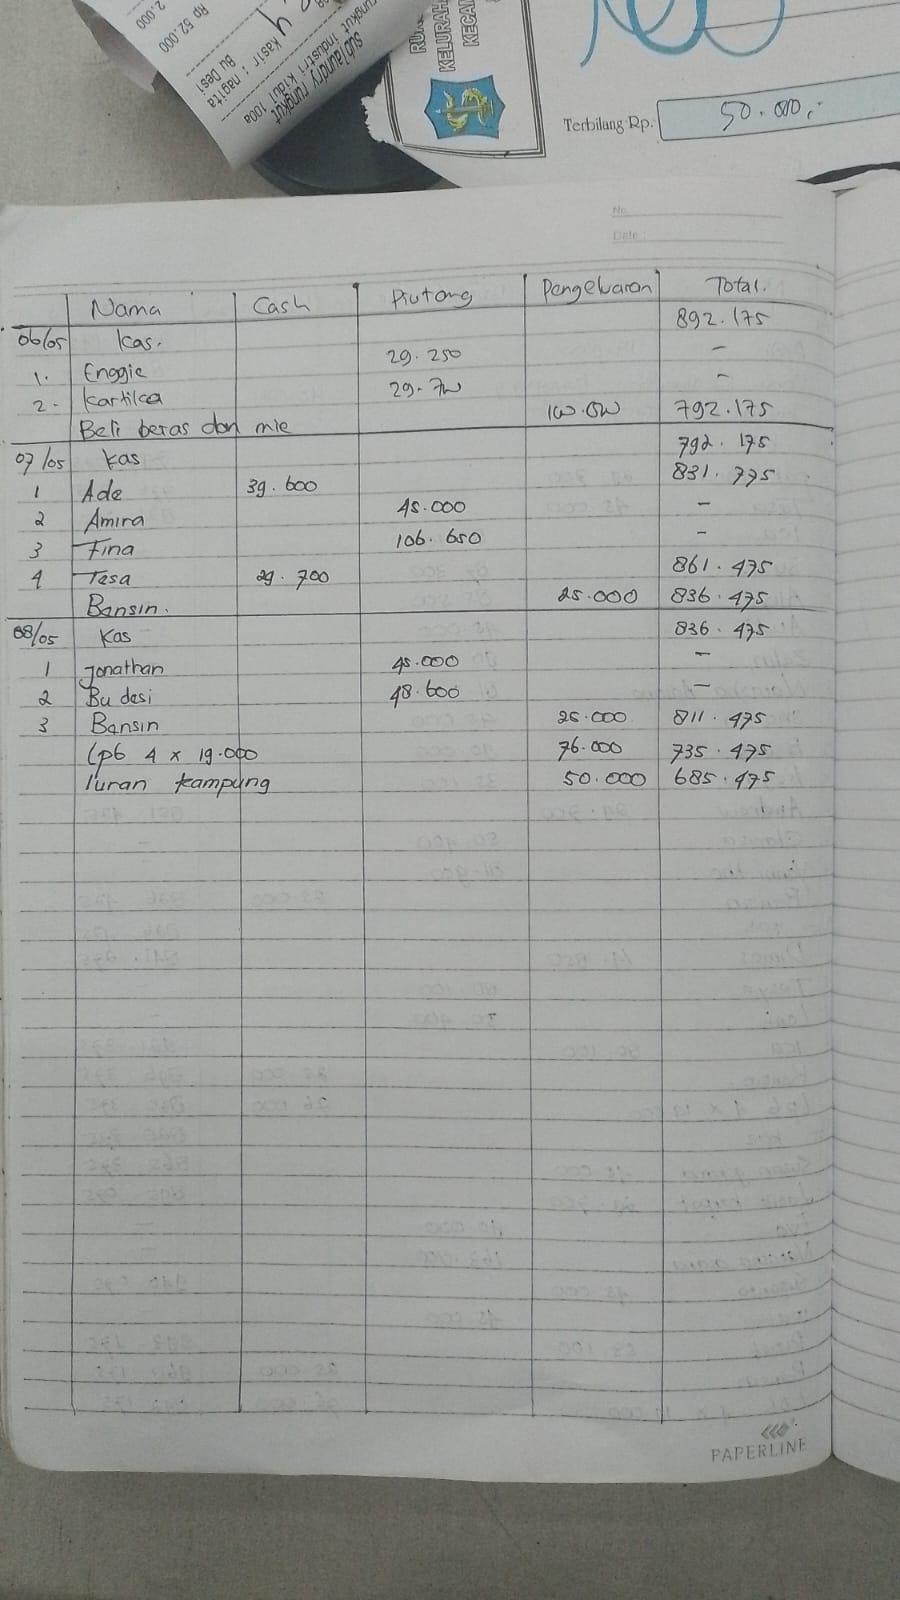 Rp 52.000
2.000
Kasir : nagita
Bu Desi
sub laundry rungkut
rungkut industri kidul 100a
KELURAH
KECA
Terbilang Rp. 50.000,-
No.
Date :
Nama Cash Piutang Pengeluaran Total.
06/05 Kas. 892.175
1. Enggie 29.250 -
2. Kartika 29.700 -
Beli beras dan mie 100.000 792.175
07/05 Kas 792.175
1 Ade 39.600 831.775
2 Amira 45.000 -
3 Fina 106.650 -
4 Tasa 29.700 861.475
Bensin. 25.000 836.475
08/05 Kas 836.475
1 Jonathan 45.000 -
2 Bu desi 48.600 -
3 Bensin 25.000 811.475
Lpb 4 x 19.000 76.000 735.475
Iuran kampung 50.000 685.475
PAPERLINE